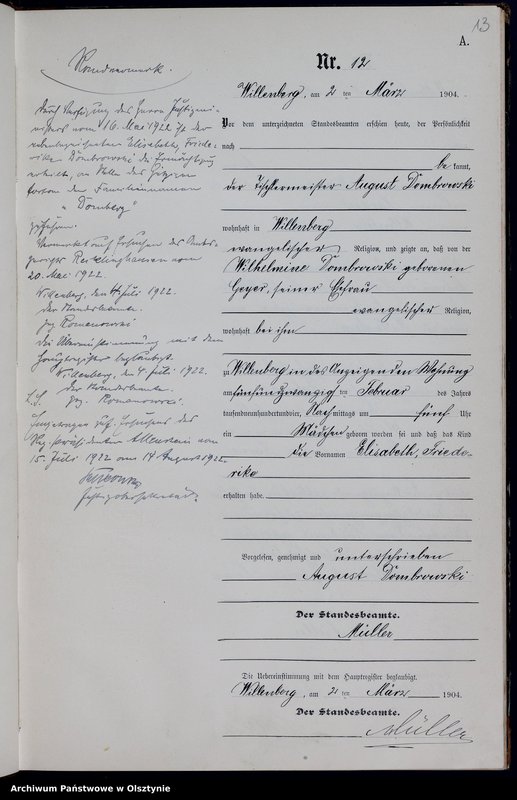 13
A.
Nr. 12
Willenberg, am 2 ten März 1904.
Vor dem unterzeichneten Standesbeamten erschien heute, der Persönlichkeit
nach
be kannt,
der Tischlermeister August Dombrowski
wohnhaft in Willenberg
evangelischer Religion, und zeigte an, daß von der
Wilhelmine Dombrowski geborenen
Geyer, seiner Ehefrau
evangelischer Religion,
wohnhaft bei ihm
zu Willenberg in des Anzeigenden Wohnung
am fünfundzwanzig ten Februar des Jahres
tausendneunhundertundvier, Nach mittags um fünf Uhr
ein Mädchen geboren worden sei und daß das Kind
die Vornamen Elisabeth, Friede-
rike
erhalten habe.
Vorgelesen, genehmigt und unterschrieben
August Dombrowski
Der Standesbeamte.
Müller
Die Uebereinstimmung mit dem Hauptregister beglaubigt.
Willenberg, am 2 ten März 1904.
Der Standesbeamte.
Müller
Randvermerk.
Durch Verfügung des Herrn Justizmi-
nisters vom 16. Mai 1922 ist der
nebenbezeichneten Elisabeth, Friede-
rike Dombrowski die Ermächtigung
erteilt, an Stelle des bisherigen
den Familiennamen
"Domberg"
zu führen.
Vermerkt auf Ersuchen des Amts-
gerichts Recklinghausen vom
20. Mai 1922.
Willenberg, den 4. Juli 1922.
Der Standesbeamte.
gez. Romanowski
Die Übereinstimmung mit dem
Hauptregister beglaubigt.
Willenberg, den 4. Juli 1922.
Der Standesbeamte.
L.S. gez. Romanowski.
Eingetragen auf Ersuchen des
Reg. präsidenten Allenstein vom
15. Juli 1922 am 14 August 1922.
Justizobersekretär
Archiwum Państwowe w Olsztynie